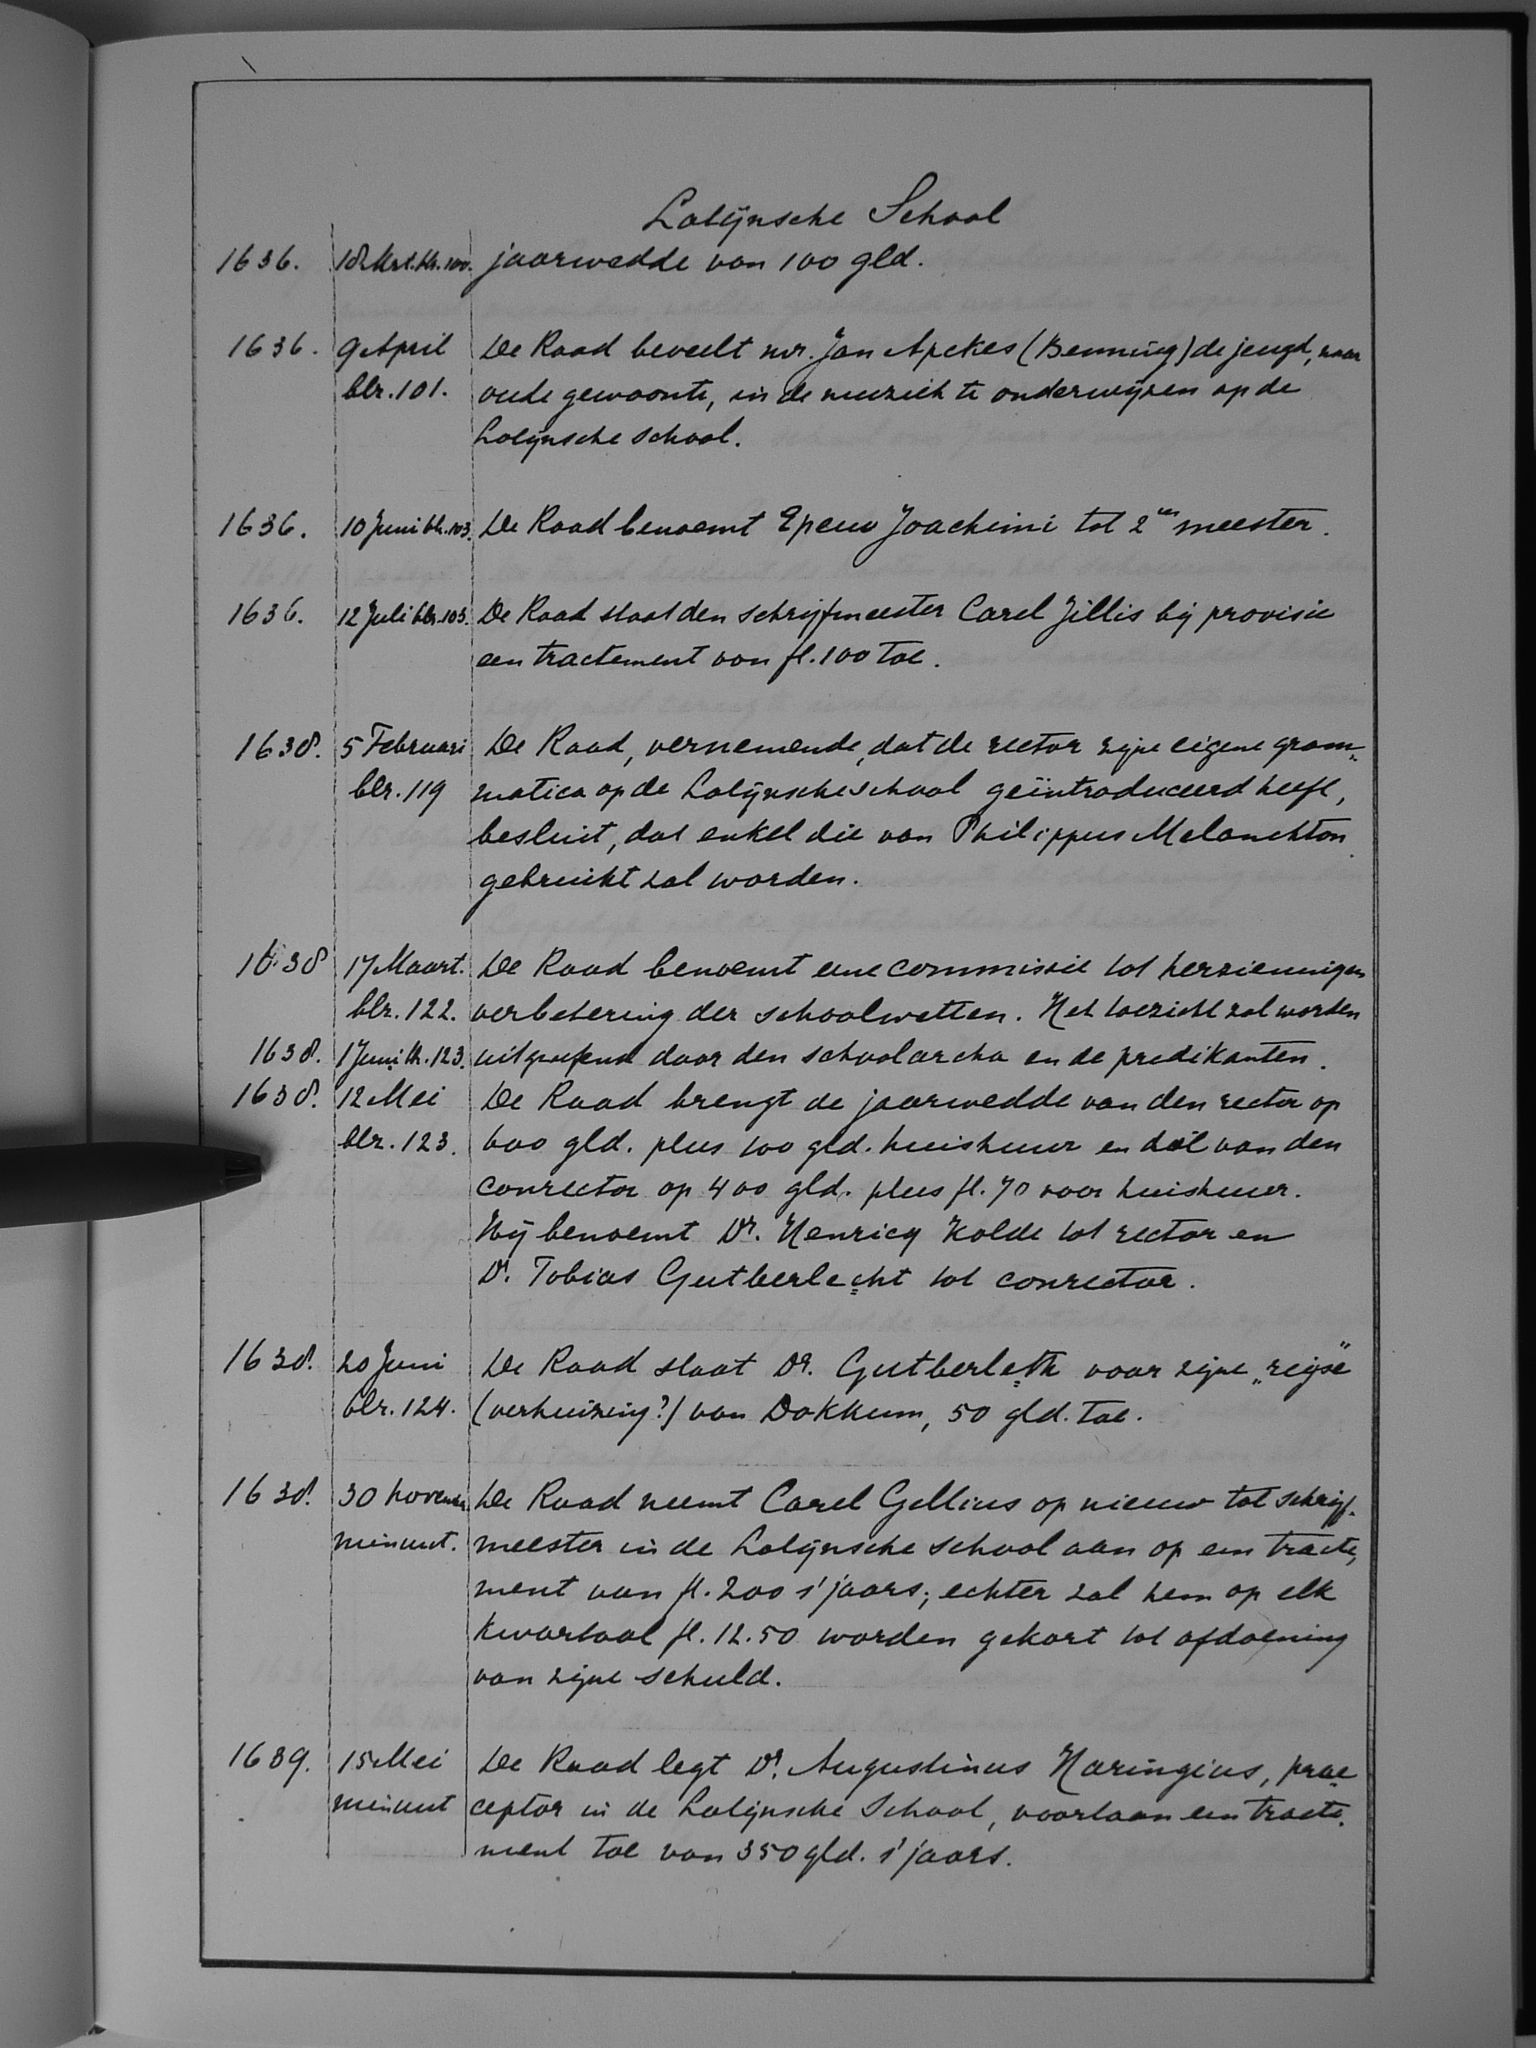 Latijnsche School
1636. 18 Mrt. blr. 100. jaarwedde van 100 gld.
1636. 9 April De Raad beveelt mr. Jan Apekes (Benning) de jeugd, naar
blr. 101. oude gewoonte, in de muziek te onderwijzen op de
Latijnsche school.
1636. 10 Juni blr. 103. De Raad benoemt Epeus Joachimi tot 2en meester.
1636. 12 Juli blr. 103. De Raad staat den schrijfmeester Carel Jillis bij provisie
een tractement van fl. 100 toe.
1638. 5 Februari De Raad, vernemende, dat de rector zijne eigene gram-
blr. 119 matica op de Latijnsche school geïntroduceerd heeft,
besluit, dat enkel die van Philippus Melanchton
gebruikt zal worden.
1638 17 Maart. De Raad benoemt eene commissie tot herziening en
blr. 122. verbetering der schoolwetten. Het toezicht zal worden
1638. 1 Juni blr. 123. uitgeoefend door den schoolarcha en de predikanten.
1638. 12 Mei De Raad brengt de jaarwedde van den rector op
blz. 123. 600 gld. plus 100 gld. huishuur en dat van den
conrector op 400 gld. plus fl. 70 voor huishuur.
Hij benoemt Dr. Henricq Kolde tot rector en
Dr. Tobias Gutberlecht tot conrector.
1638. 20 Juni De Raad staat Dr. Gutberleth voor zijne „reijse"
blr. 124. (verhuizing?) van Dokkum, 50 gld. toe.
1638. 30 november De Raad neemt Carel Gellius op nieuw tot schrijf-
minuut. meester in de Latijnsche school aan op een tracte-
ment van fl. 200 s'jaars; echter zal hem op elk
kwartaal fl. 12.50 worden gekort tot afdoening
van zijne schuld.
1639. 15 Mei De Raad legt Dr. Augustinus Haringius, prae-
minuut ceptor in de Latijnsche School, voortaan een tracte-
ment toe van 350 gld. s'jaars.